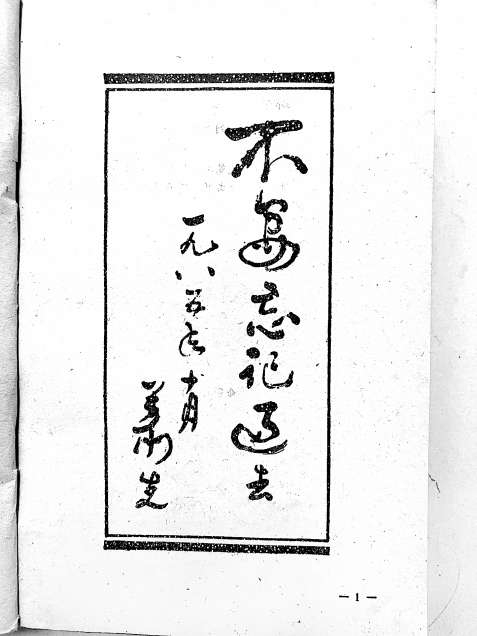 不要忘记过去
一九八五年十月
萧克
— 1 —